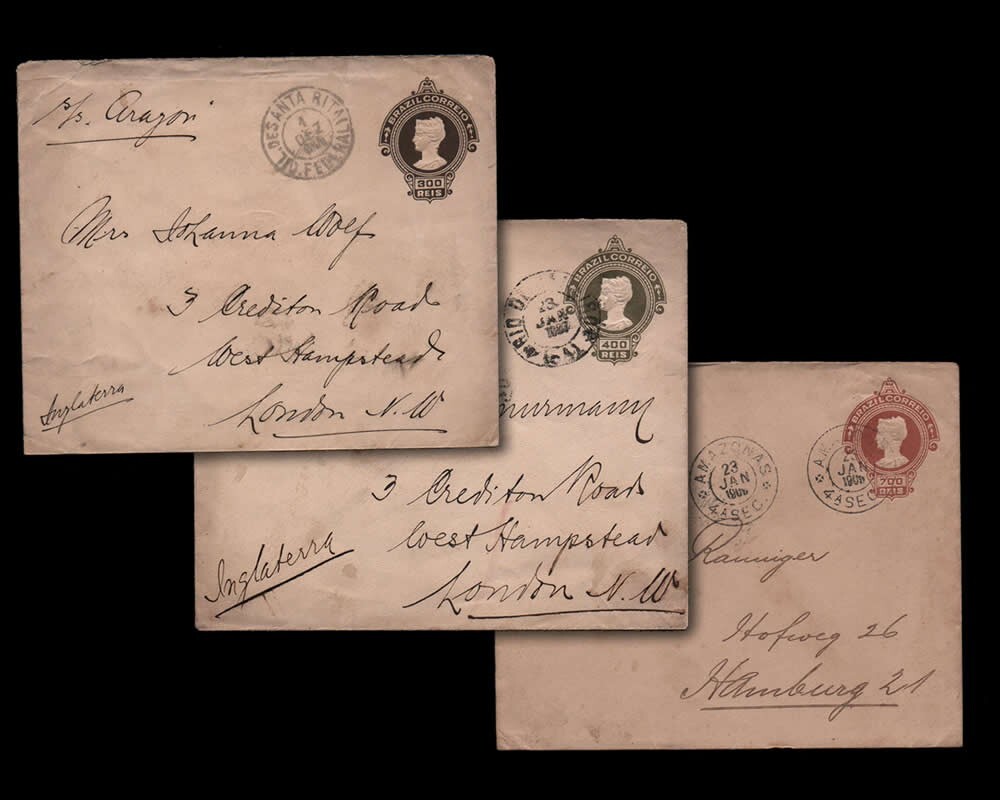 s/s. Aragon
DE SANTA RITA
1
DEZ
D. FEDERAL
BRAZIL CORREIO
300
REIS
Mrs Johanna Wolf
3 Crediton Road
West Hampstead
London N.W
Inglaterra
RIO DE
JAN
BRAZIL CORREIO
400
REIS
3 Crediton Road
West Hampstead
London N.W
Inglaterra
AMAZONAS
23
JAN
4A SEC.
JAN
4A SEC.
BRAZIL CORREIO
700
REIS
Hofweg 26
Hamburg 21